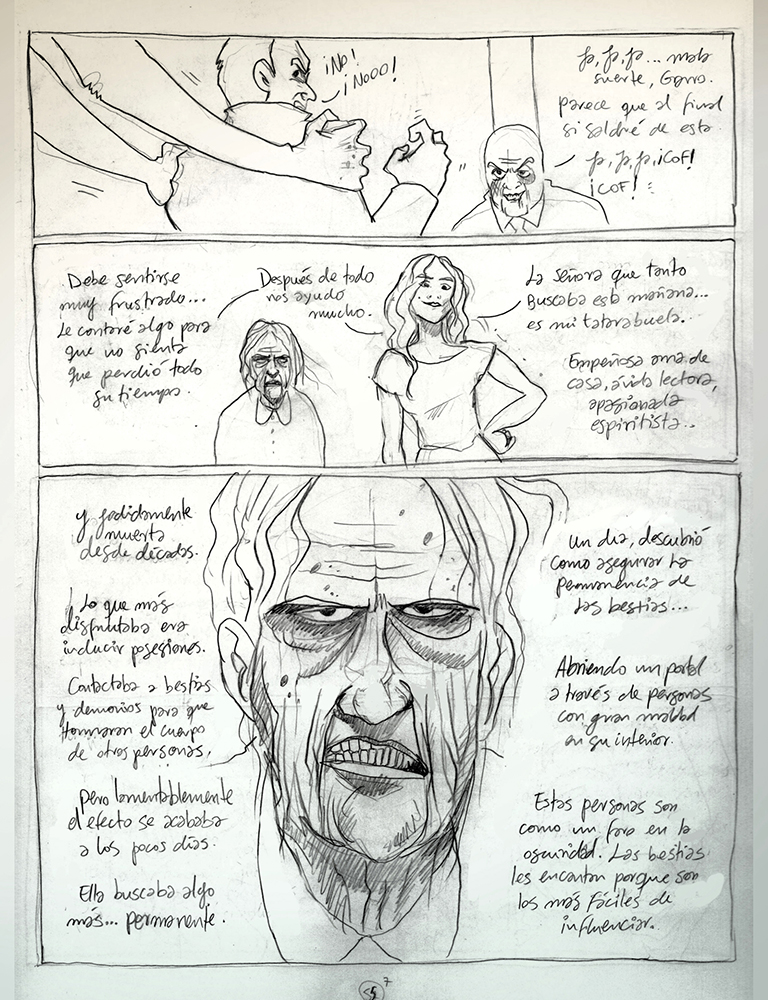 ¡No!
¡Nooo!
Ja, Ja, Ja... mala
suerte, Garro.
parece que al final
si saldré de esta.
Ja, Ja, Ja, ¡COF!
¡COF!
Debe sentirse
muy frustrado...
Le contaré algo para
que no sienta
que perdió todo
su tiempo.
Después de todo
nos ayudo
mucho.
La señora que tanto
Buscaba esta mañana...
es mi tatarabuela.
Empeñosa ama de
casa, ávida lectora,
apasionada
espiritista..
y jodidamente
muerta
desde décadas.
Lo que más
disfrutaba era
inducir posesiones.
Contactaba a bestias
y demonios para que
tomaran el cuerpo
de otras personas.
Pero lamentablemente
el efecto se acababa
a los pocos días.
Ella buscaba algo
más... permanente.
Un día, descubrió
como asegurar la
permanencia de
las bestias...
Abriendo un portal
a través de personas
con gran maldad
en su interior.
Estas personas son
como un faro en la
oscuridad. Las bestias
les encantan porque son
los más fáciles de
influenciar.
7